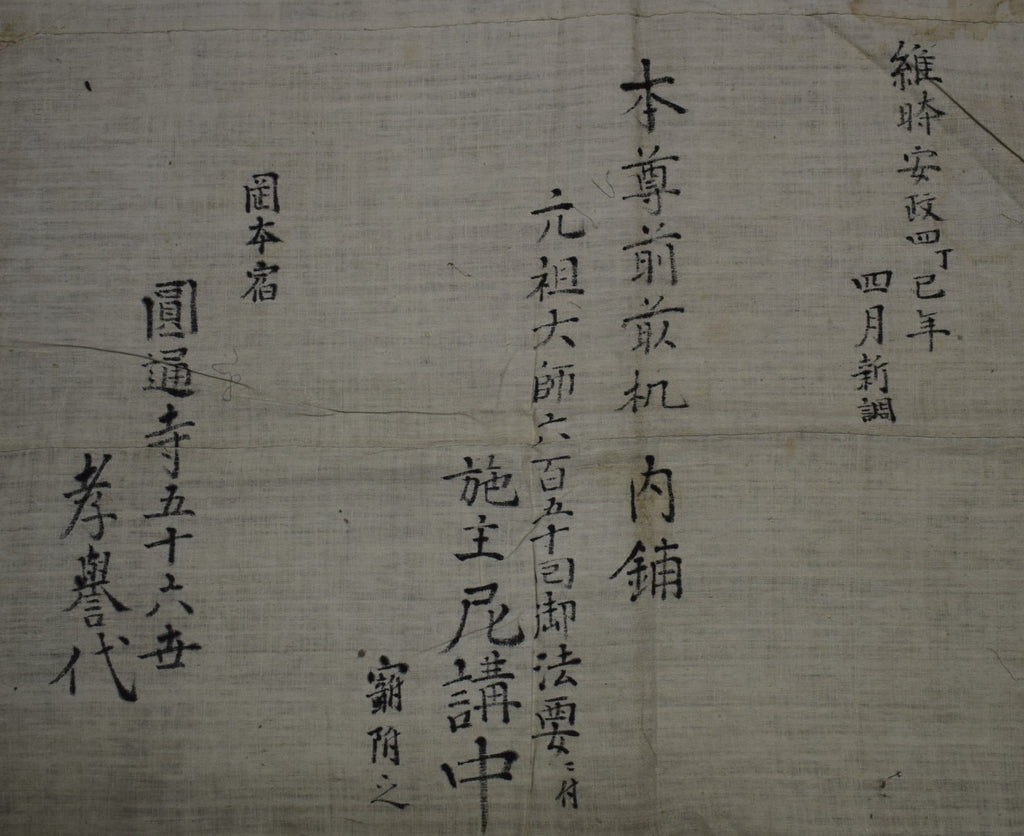 維時安政四丁巳年
四月新調
本尊前㝡机 内鋪
元祖大師六百五十回御法要ニ付
施主尼講中
寄附之
岡本宿
圓通寺五十六世
孝譽代